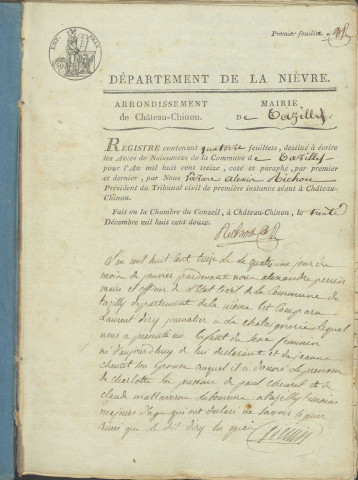 Premier feuillet
DÉPARTEMENT DE LA NIÈVRE.
ARRONDISSEMENT
de Château-Chinon.
MAIRIE
DE Tazilly
REGISTRE contenant quatorze feuillets, destiné à écrire
les Actes de Naissances de la Commune de Tazilly
pour l'An mil huit cent treize, coté et paraphé, par premier
et dernier, par Nous
Président du Tribunal civil de première instance séant à Château-
Chinon.
Fait en la Chambre du Conseil, à Château-Chinon, le trente
Décembre mil huit cent douze.
L'an mil huit cent treize le quatrième jour du
mois de janvier pardevant nous alexandre perrin
maire et officier de l'Etat Civil de la Commune de
tazilly departement de la nièvre Est Comparu
Laurent dery a la lequel
nous a presenté un Enfant du sexe feminin
né d'aujourdhuy de lui declarant et de jeanne
son Epouse auquel il a donné le prenom
de charlotte En presence de paul et de
claude a tazilly temoins
majeurs d'age qui ont declaré ne savoir signer
ainsi que le dit dery
perrin